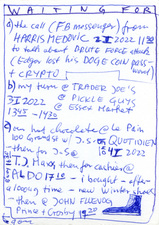 WAITING FOR
a) the call (FB messenger) from
HARRIS MEDOVIC 2 I 2022 11 30
to talk about BRUTE FORCE attack
(Edgar lost his DOGE COIN pass-
word)
+ CRYPTO
b) my turn @ TRADER JOE'S
3 I 2022 @ PICKLE GUYS
13 45 - 14 30 @ Essex Market
c) a hot chocolate @ Le Pain
Quotidien
then for J.S@ 4 I 2022
T.J. Maxx then for cashier @
ALDO 17 10 - I bought - after
a looong time - new winter shoes
- then @ JOHN FLUEVOG
Prince + Crosby 18 30